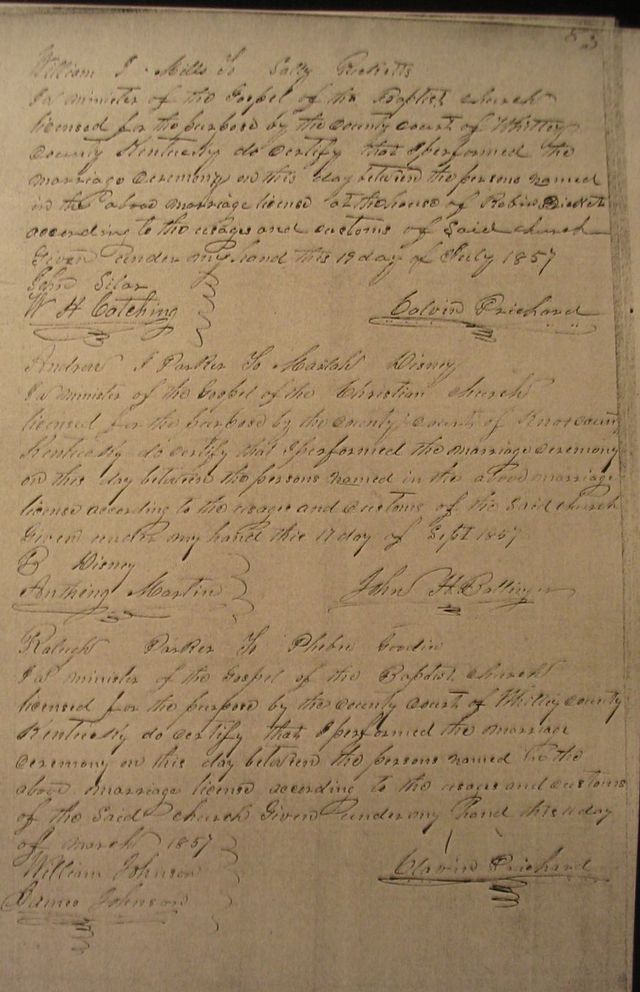 53
William J. Mills To Sally Ricketts
I a minister of the Gospel of the Baptist church
licensed for the purpose by the county court of Whitley
county Kentucky do certify that I performed the
marriage ceremony on this day between the persons named
in the above marriage license at the house of Robin Ricketts
according to the usages and customs of Said church
Given under my hand this 19 day of July 1857
John Silar
W H Catching
Calvin Prichard
Andrew J Parker To Mariah Disney
I a minister of the Gospel of the Christian church
licensed for the purpose by the county court of Knox county
Kentucky do certify that I performed the marriage ceremony
on this day between the persons named in the above marriage
license according to the usages and customs of the Said church
Given under my hand this 17 day of Sept 1857
B Disney
Anthony Martin
John H Ballinger
Raleigh Parker To Phebe Goodin
I a minister of the Gospel of the Baptist church
licensed for the purpose by the county court of Whitley county
Kentucky do certify that I performed the marriage
ceremony on this day between the persons named in the
above marriage license according to the usages and customs
of the Said church Given under my hand this 11 day
of March 1857
William Johnson
James Johnson
Clavin Prichard